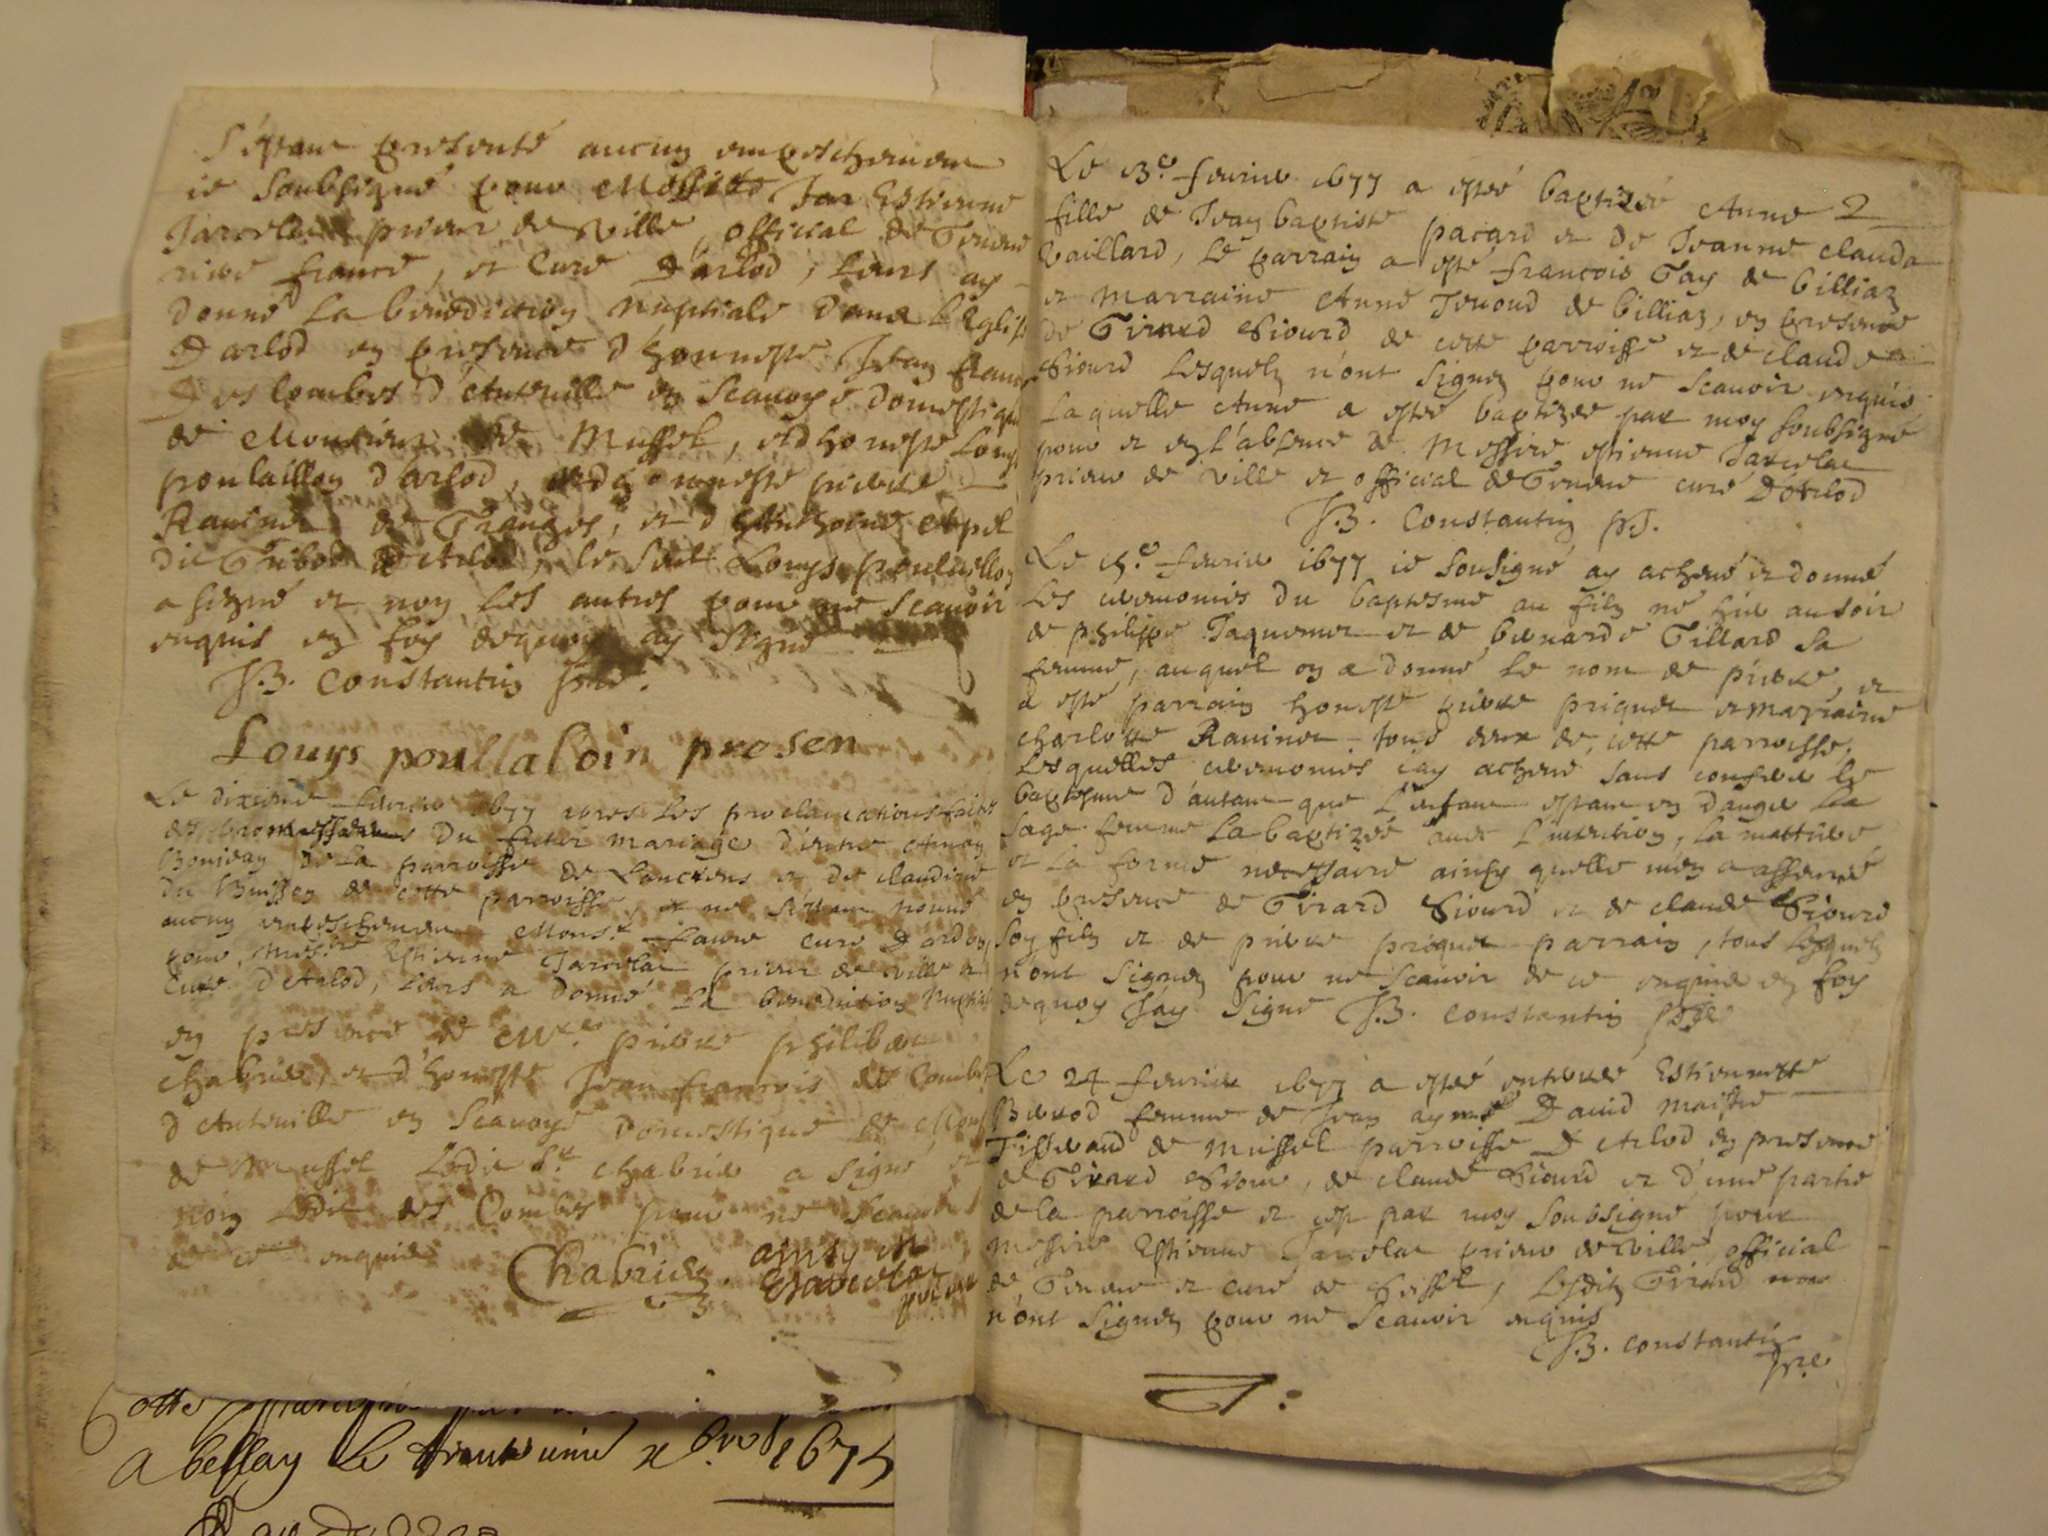 S'estant presenté aucun empeschement
ie soubsigné pour Messire Jan Estienne
Jarcelat prieur de Ville, official de Geneve
rive france, et Curé D'arlod, leurs ay
donné La benediction nuptiale dans l'Eglise
D'arlod en presence d'honneste Jean franc
Des Combes d'Anteville en Scavoye domestique
de Monsieur de Mussel, et d'honneste Louys
poulaillon d'arlod, et d'honneste pierre
Ravinet de et d'Anthoine
dit d'Arlod, le seul Louys poulaillon
a signé et non les autres pour ne scavoir
enquis en foy dequoy ay signé
J.B. Constantin ptre.
Louys poullaloin presen
Le dixieme fevrier 1677 apres les proclamations faictes
des promesses du futur mariage d'entre
de la parroisse de Lancrens et de claudine
du Buisson de cette parroisse, et ne s'estant trouvé
aucun empeschement Mons.r favre curé D'ardon
pour Mess.re Estienne Jarcelat prieur de ville et
Curé d'Arlod, leurs a donné La benediction Nuptial
en presence de M.re pierre philibert
chabrier, et d'honneste Jean francois des Combes
d'Anteville en Scavoye domestique de Mons
de Mussel Ledit S.r chabrier a signé et
non Ledit des Combes pour ne scavoir
de ce enquis
Chabrier. ainsy est
Jarcelat
prieur
Le 13.e fevrier 1677 a esté baptizée Anne
fille de Jean baptiste pacard et de Jeanne clauda
vaillard, Le parrain a esté francois Tay de billiaz
et marraine Anne Jenoud de billiaz, en presence
de Girard Siourd de cette parroisse et de claude
Siourd Lesquelz n'ont signez pour ne scavoir enquis
Laquelle Anne a esté baptizée par moy soubsigné
pour et en l'absence de Messire estienne Jarcelat
prieur de Ville et official de Geneve curé D'Arlod
J.B. Constantin pt.
Le fevrier 1677 ie sousigné ay achevé et donné
Les ceremonies du baptesme au filz né hier au soir
de philippe Jaquemet et de bernarde Tillard sa
femme, auquel on a donné le nom de pierre, et
a esté parrain honeste pierre priquet et marraine
charlotte Ravinet tous deux de cette parroisse.
Lesquelles ceremonies iay achevé sans conferer le
baptesme d'autant que L'enfant estant en danger La
sage femme La baptizée avec L'intention, la mattiere
et la forme necessaire ainsy quelle m'en a asseuré
en presence de Girard Siourd et de claude Siourd
son filz et de pierre priquet parrain, tous Lesquelz
n'ont signez pour ne scavoir de ce enquis en foy
dequoy Jay signé J.B. Constantin ptre
Le 24 fevrier 1677 a esté enterrée Estiennette
femme de Jean aymé David maistre
Tisserand de mussel parroisse D'Arlod en presence
de Girard Siour, de claude Siourd et d'une partie
de la parroisse et cest par moy soubsigné pour
messire Estienne Jarcelat prieur de Ville official
de Geneve et curé de Lesditz Girard
n'ont signez pour ne scavoir enquis
J.B. constantin
ptre
A bellay Le trente unie x.bre 1675